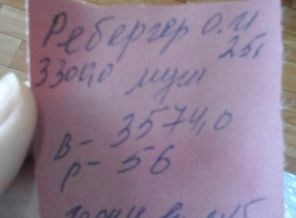 Ребергер О.И
25г
3300,0 муж
в- 3574,0
р- 56